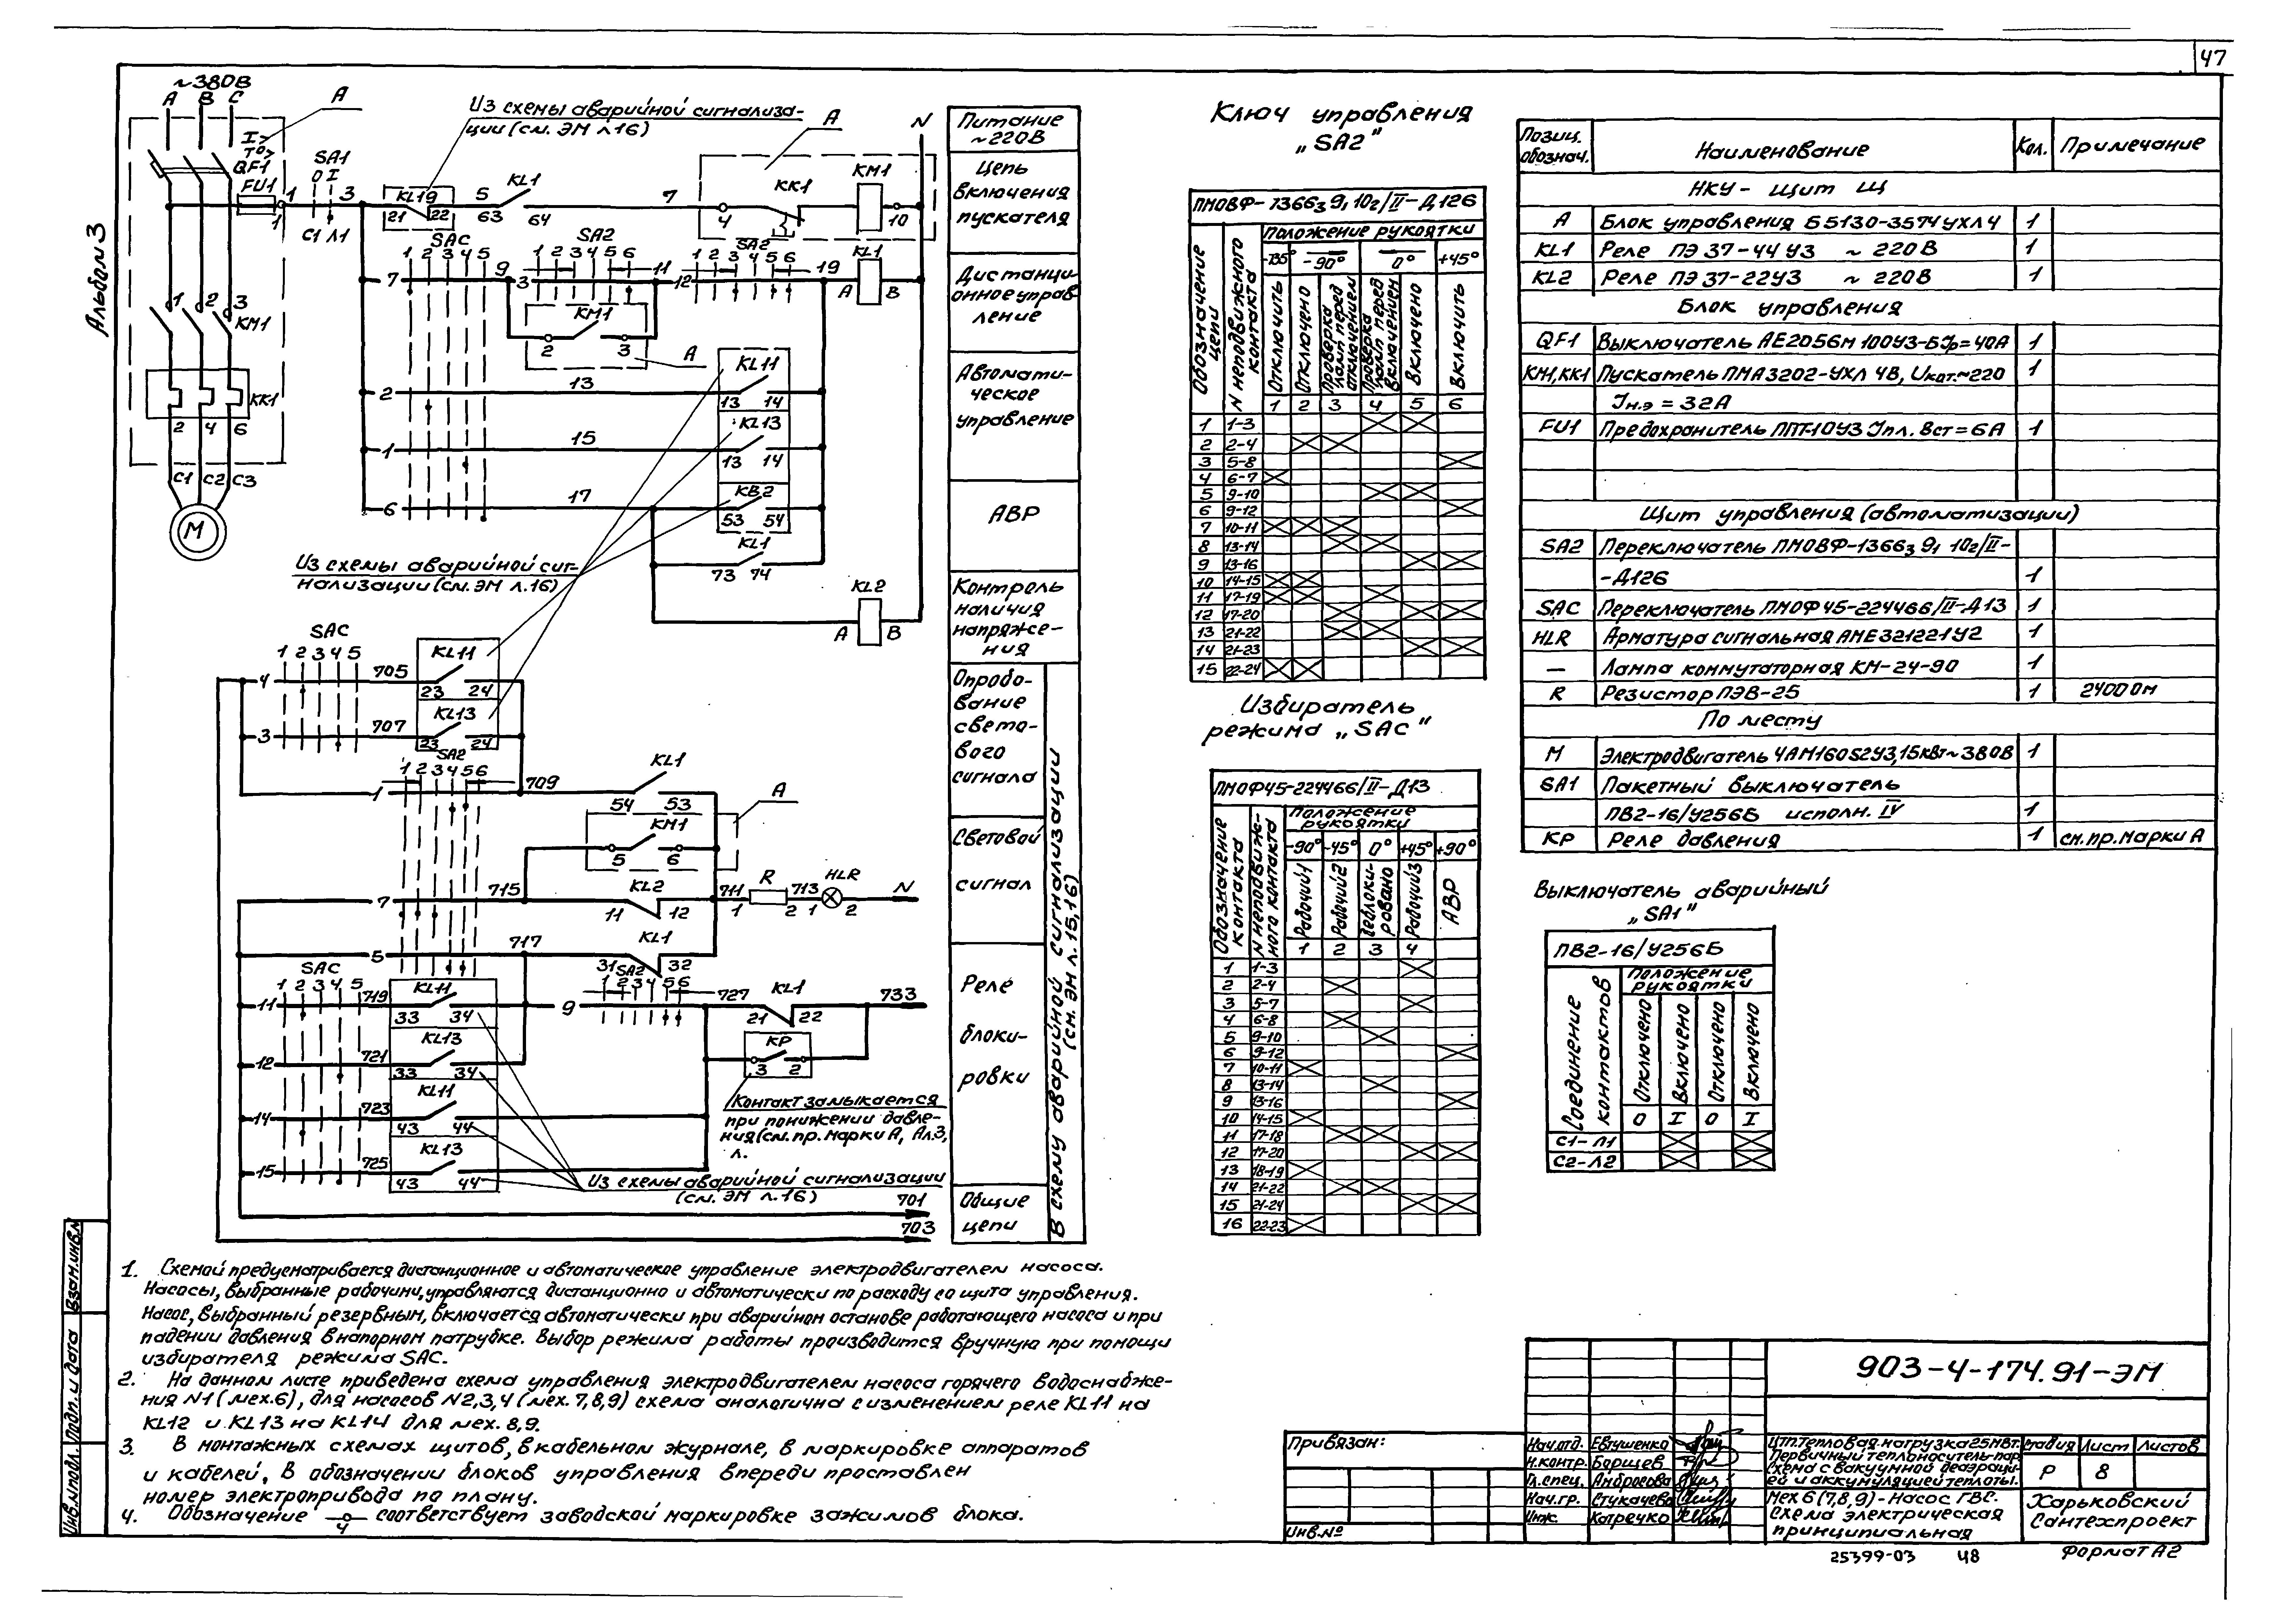 47
Альбом 3
~380В
А В С
А
I>
T°>
QF1
FU1
SA1
0 I
С1 Л1
1 3
Из схемы аварийной сигнализа-
ции (см. ЭМ л.16)
KL19
21 22
5 KL1
63 64
7
А
KK1
KM1
4 10
N
SAC
1 2 3 4 5
7 9
SA2
1 2 3 4 5 6
3 11
SA2
1 2 3 4 5 6
12 19
KL1
А В
KM1
2 3
А
1 2 3
KM1
KK1
2 4 6
С1 С2 С3
М
2 13
KL11
13 14
1 15
KL13
13 14
6 17
КВ2
53 54
KL1
73 74
KL2
А В
Из схемы аварийной сиг-
нализации (см. ЭМ л.16)
SAC
1 2 3 4 5
4 705
KL11
23 24
3 707
KL13
23 24
SA2
1 2 3 4 5 6
1 709
KL1
54 53
А
KM1
5 6
7 715
KL2
11 12
711 R 713 HLR N
1 2 1 2
5 717
KL1
31 32
SAC
1 2 3 4 5
11 719
KL11
33 34
9
SA2
1 2 3 4 5 6
727
KL1
21 22
733
12 721
KL13
33 34
КР
3 2
14 723
KL11
43 44
15 725
KL13
43 44
Контакт замыкается
при понижении давле-
ния (см. пр. марки А, Ал.3,
л.
Из схемы аварийной сигнализации
(см. ЭМ л.16)
701
703
Питание
~220В
Цепь
включения
пускателя
Дистанци-
онное управ-
ление
Автомати-
ческое
управление
АВР
Контроль
наличия
напряже-
ния
Опробо-
вание
свето-
вого
сигнала
Световой
сигнал
Реле
блоки-
ровки
Общие
цепи
В схему аварийной сигнализации
(см. ЭМ л. 15,16)
Ключ управления
„SA2"
ПМОВФ-1366₃ 9, 10г/II-Д126
Обозначение цепи
N неподвижного контакта
Положение рукоятки
-135° -90° 0° +45°
Отключить
Отключено
Проверка ламп перед отключением
Проверка ламп перед включением
Включено
Включить
1 2 3 4 5 6
1 1-3
2 2-4
3 5-8
4 6-7
5 9-10
6 9-12
7 10-11
8 13-14
9 13-16
10 14-15
11 17-19
12 17-20
13 21-22
14 21-23
15 22-24
Избиратель
режима „SAC"
ПМОФ45-224466/II-Д13
Обозначение контакта
N неподвиж-ного контакта
Положение
рукоятки
-90° -45° 0° +45° +90°
Рабочий 1
Рабочий 2
Деблоки-ровано
Рабочий 3
АВР
1 2 3 4
1 1-3
2 2-4
3 5-7
4 6-8
5 9-10
6 9-12
7 10-11
8 13-14
9 13-16
10 14-15
11 17-18
12 17-20
13 18-19
14 21-22
15 21-24
16 22-23
Позиц. обознач. Наименование Кол. Примечание
НКУ - щит Щ
А Блок управления Б5130-3574 УХЛ4 1
KL1 Реле ПЭ 37-44 У3 ~ 220 В 1
KL2 Реле ПЭ 37-22У3 ~ 220В 1
Блок управления
QF1 Выключатель АЕ2056М 100У3-Б Iр=40А 1
KM1,KK1 Пускатель ПМА3202-УХЛ 4В, Uкат.~220 1
Iн.э = 32А
FU1 Предохранитель ППТ-10У3 Iпл. Вст=6А 1
Щит управления (автоматизации)
SA2 Переключатель ПМОВФ-1366₃ 9, 10г/II-
-Д126 1
SAC Переключатель ПМОФ45-224466/II-Д13 1
HLR Арматура сигнальная АМЕ321221У2 1
— Лампа коммутаторная КМ-24-90 1
R Резистор ПЭВ-25 1 2400 Ом
По месту
М Электродвигатель 4АМ160S2У3,15кВт~380В 1
SA1 Пакетный выключатель
ПВ2-16/У256Б исполн. IV 1
КР Реле давления 1 см.пр.марки А
Выключатель аварийный
„SA1"
ПВ2-16/У256Б
Соединение контактов
Положение
рукоятки
Отключено
Включено
Отключено
Включено
0 I 0 I
С1-Л1
С2-Л2
1. Схемой предусматривается дистанционное и автоматическое управление электродвигателем насоса.
Насосы, выбранные рабочими, управляются дистанционно и автоматически по расходу со щита управления.
Насос, выбранный резервным, включается автоматически при аварийном останове работающего насоса и при
падении давления в напорном патрубке. Выбор режима работы производится вручную при помощи
избирателя режима SAC.
2. На данном листе приведена схема управления электродвигателем насоса горячего водоснабже-
ния N1 (мех.6), для насосов N2,3,4 (мех. 7,8,9) схема аналогична с изменением реле KL11 на
KL12 и KL13 на KL14 для мех. 8,9.
3. В монтажных схемах щитов, в кабельном журнале, в маркировке аппаратов
и кабелей, в обозначении блоков управления впереди проставлен
номер электропривода по плану.
4. Обозначение 4 соответствует заводской маркировке зажимов блока.
Взам.инв.№
Подп. и дата
Инв.№подл.
Привязан:
Инв.№
903-4-174.91-ЭМ
Нач.отд. Евтушенко
Н.контр. Борщев
Гл.спец. Амбросова
Нач.гр. Стукачева
Инж. Катречко
ЦТП. Тепловая нагрузка 25МВт.
Первичный теплоноситель-пар.
Схема с вакуумной деаэраци-
ей и аккумуляцией теплоты.
Стадия Лист Листов
Р 8
Мех 6 (7,8,9) - Насос ГВС.
Схема электрическая
принципиальная
Харьковский
Сантехпроект
25399-03 48
Формат А2